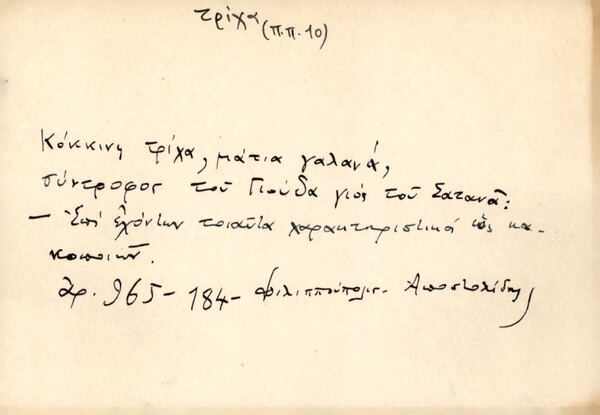 τρίχα (π.π. 10)
Κόκκινη τρίχα, μάτια γαλανά,
σύντροφος τοῦ Γιούδα γιός τοῦ Σατανᾶ:
— Ἐπί ἐχόντων τοιαῦτα χαρακτηριστικά ὡς κα-
κοποιῶν.
Ἀρ. 965 - 184 - Φιλιππούπολις - Ἀποστολίδης